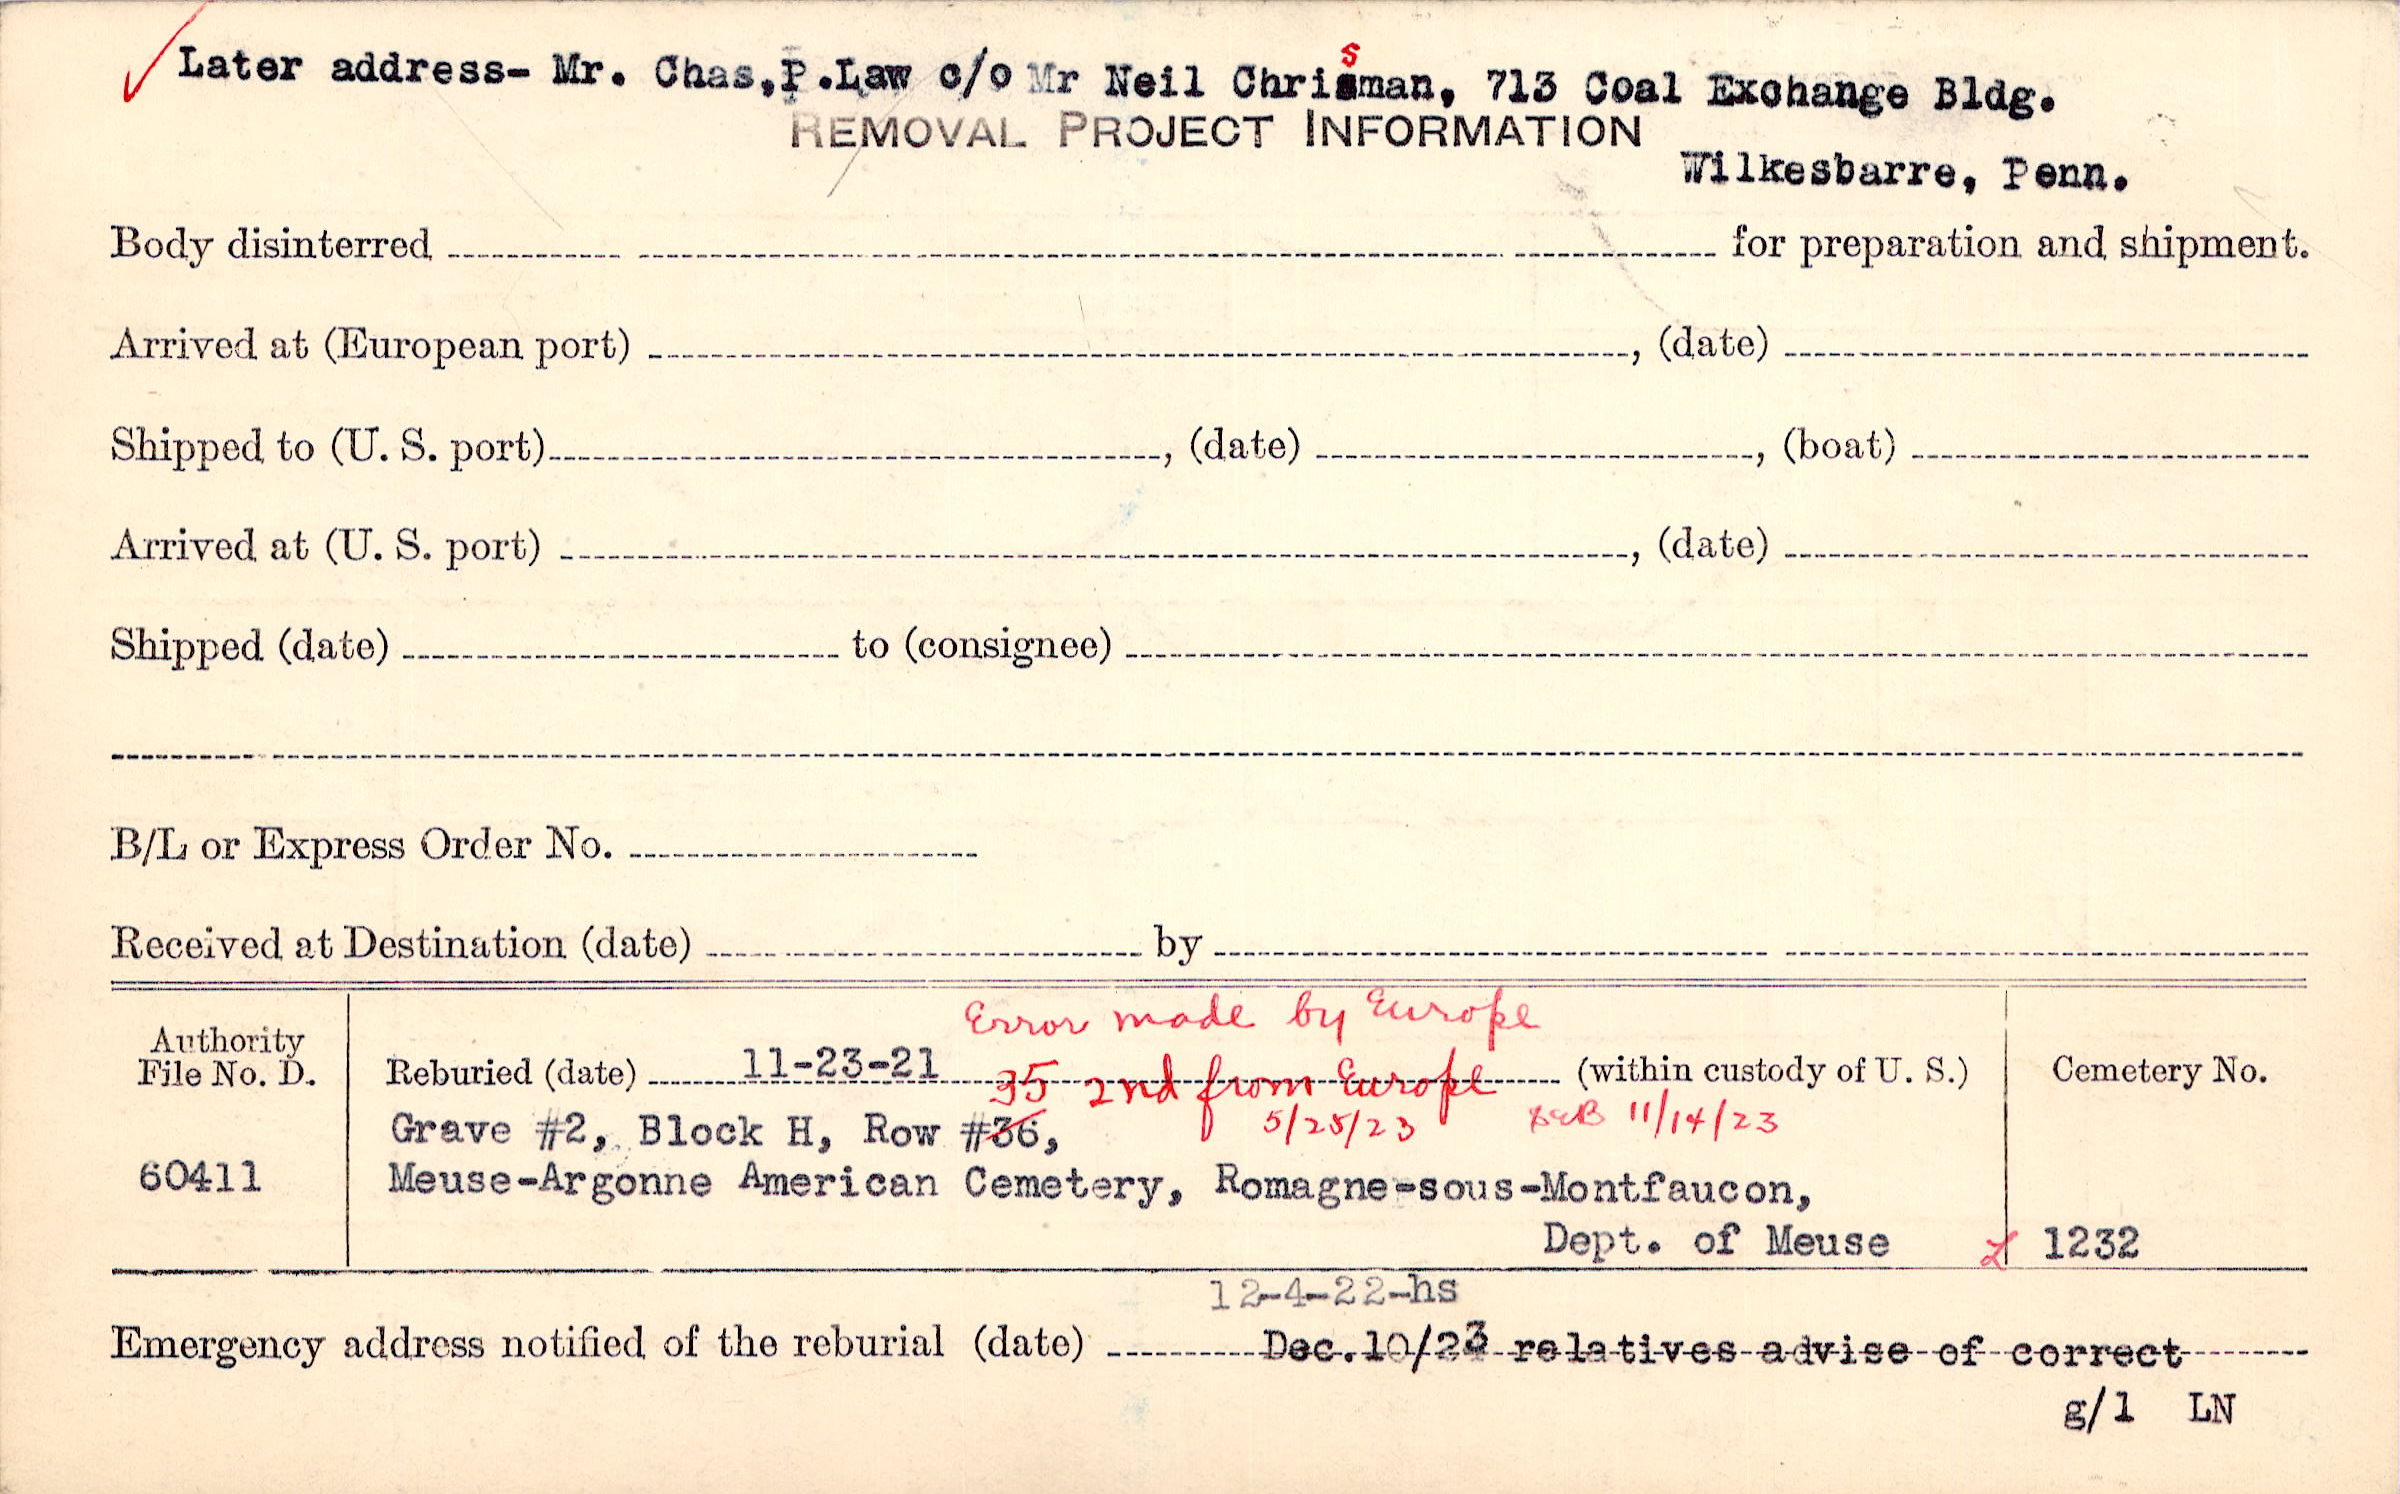 Later address- Mr. Chas,P.Law c/o Mr Neil Chrisman, 713 Coal Exchange Bldg.
s
REMOVAL PROJECT INFORMATION
Wilkesbarre, Penn.
Body disinterred for preparation and shipment.
Arrived at (European port) , (date)
Shipped to (U. S. port) , (date) , (boat)
Arrived at (U. S. port) , (date)
Shipped (date) to (consignee)
B/L or Express Order No.
Received at Destination (date) by
Error made by Europe
Authority
File No. D.
Reburied (date) 11-23-21 (within custody of U. S.) Cemetery No.
35 2nd from Europe
5/25/23 11/14/23
Grave #2, Block H, Row #36,
60411 Meuse-Argonne American Cemetery, Romagne-sous-Montfaucon,
Dept. of Meuse 1232
12-4-22-hs
Emergency address notified of the reburial (date) Dec.10/23 relatives advise of correct
g/l LN